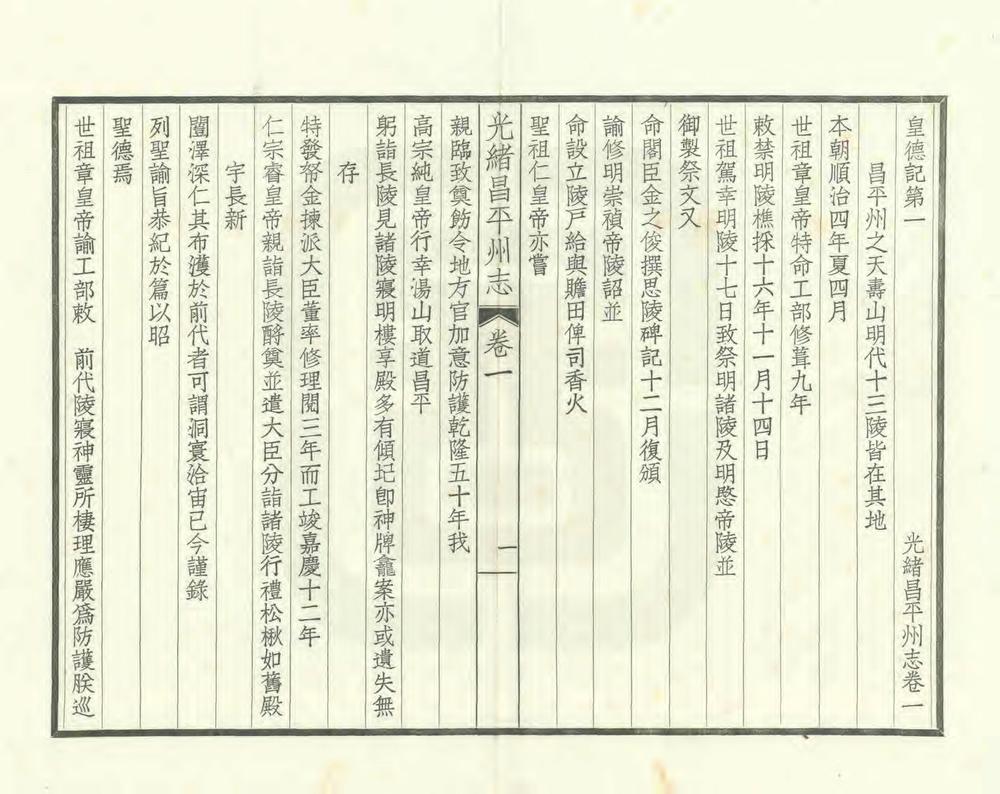 皇德記第一 光緒昌平州志卷一
昌平州之天壽山明代十三陵皆在其地
本朝順治四年夏四月
世祖章皇帝特命工部修葺九年
敕禁明陵樵採十六年十一月十四日
世祖駕幸明陵十七日致祭明諸陵及明愍帝陵並
御製祭文又
命閣臣金之俊撰思陵碑記十二月復頒
諭修明崇禎帝陵詔並
命設立陵戶給與贍田俾司香火
聖祖仁皇帝亦嘗
光緒昌平州志 卷一 一
親臨致奠飭令地方官加意防護乾隆五十年我
高宗純皇帝行幸湯山取道昌平
躬詣長陵見諸陵寢明樓享殿多有傾圮卽神牌龕案亦或遺失無
存
特發帑金揀派大臣董率修理閱三年而工竣嘉慶十二年
仁宗睿皇帝親詣長陵酹奠並遣大臣分詣諸陵行禮松楸如舊殿
宇長新
闓澤深仁其布濩於前代者可謂洞寰洽宙已今謹錄
列聖諭旨恭紀於篇以昭
聖德焉
世祖章皇帝諭工部敕 前代陵寢神靈所棲理應嚴爲防護朕巡